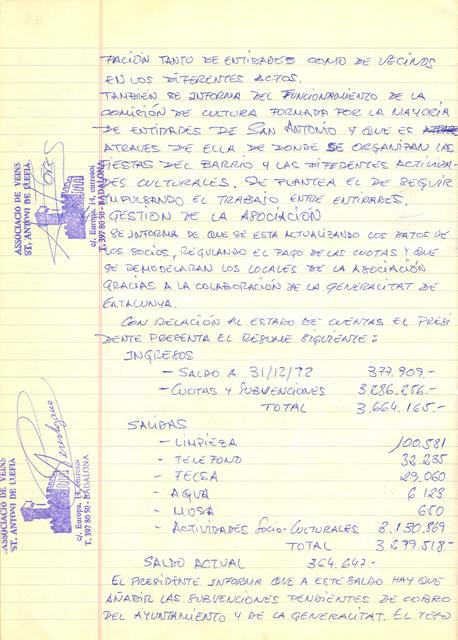 PACIÓN TANTO DE ENTIDADES COMO DE VECINOS
EN LOS DIFERENTES ACTOS.
TAMBIEN SE INFORMA DEL FUNCIONAMIENTO DE LA
COMISIÓN DE CULTURA FORMADA POR LA MAYORIA
DE ENTIDADES DE SAN ANTONIO Y QUE ES
ATRAVES DE ELLA DE DONDE SE ORGANIZAN LAS
FIESTAS DEL BARRIO Y LAS DIFERENTES ACTIVIDA-
DES CULTURALES. SE PLANTEA EL DE SEGUIR
IMPULSANDO EL TRABAJO ENTRE ENTIDADES.
GESTION DE LA ASOCIACIÓN
SE INFORMA DE QUE SE ESTA ACTUALIZANDO LOS DATOS DE
LOS SOCIOS, REGULANDO EL PAGO DE LAS CUOTAS Y QUE
SE REMODELARAN LOS LOCALES DE LA ASOCIACIÓN
GRACIAS A LA COLABORACIÓN DE LA GENERALITAT DE
CATALUNYA.
CON RELACIÓN AL ESTADO DE CUENTAS EL PRESI
DENTE PRESENTA EL RESUME SIGUIENTE:
INGRESOS
- SALDO A 31/12/92 377.909.-
- CUOTAS Y SUBVENCIONES 3.286.256.-
TOTAL 3.664.165.-
SALIDAS
- LIMPIEZA 100.581
- TELEFONO 32.235
- FECSA 29.060
- AGUA 6.123
- MUSA 650
- ACTIVIDADES SOCIO-CULTURALES 3.130.869
TOTAL 3.299.518.-
SALDO ACTUAL 364.647.-
EL PRESIDENTE INFORMA QUE A ESTE SALDO HAY QUE
AÑADIR LAS SUBVENCIONES PENDIENTES DE COBRO
DEL AYUNTAMIENTO Y DE LA GENERALITAT. EL TESO
ASSOCIACIO DE VEINS
ST. ANTONI DE LLEFIA
c/. Europa, 14, entresol
T. 397 80 50 - BADALONA
ASSOCIACIO DE VEINS
ST. ANTONI DE LLEFIA
c/. Europa, 14, entresol
T. 397 80 50 - BADALONA